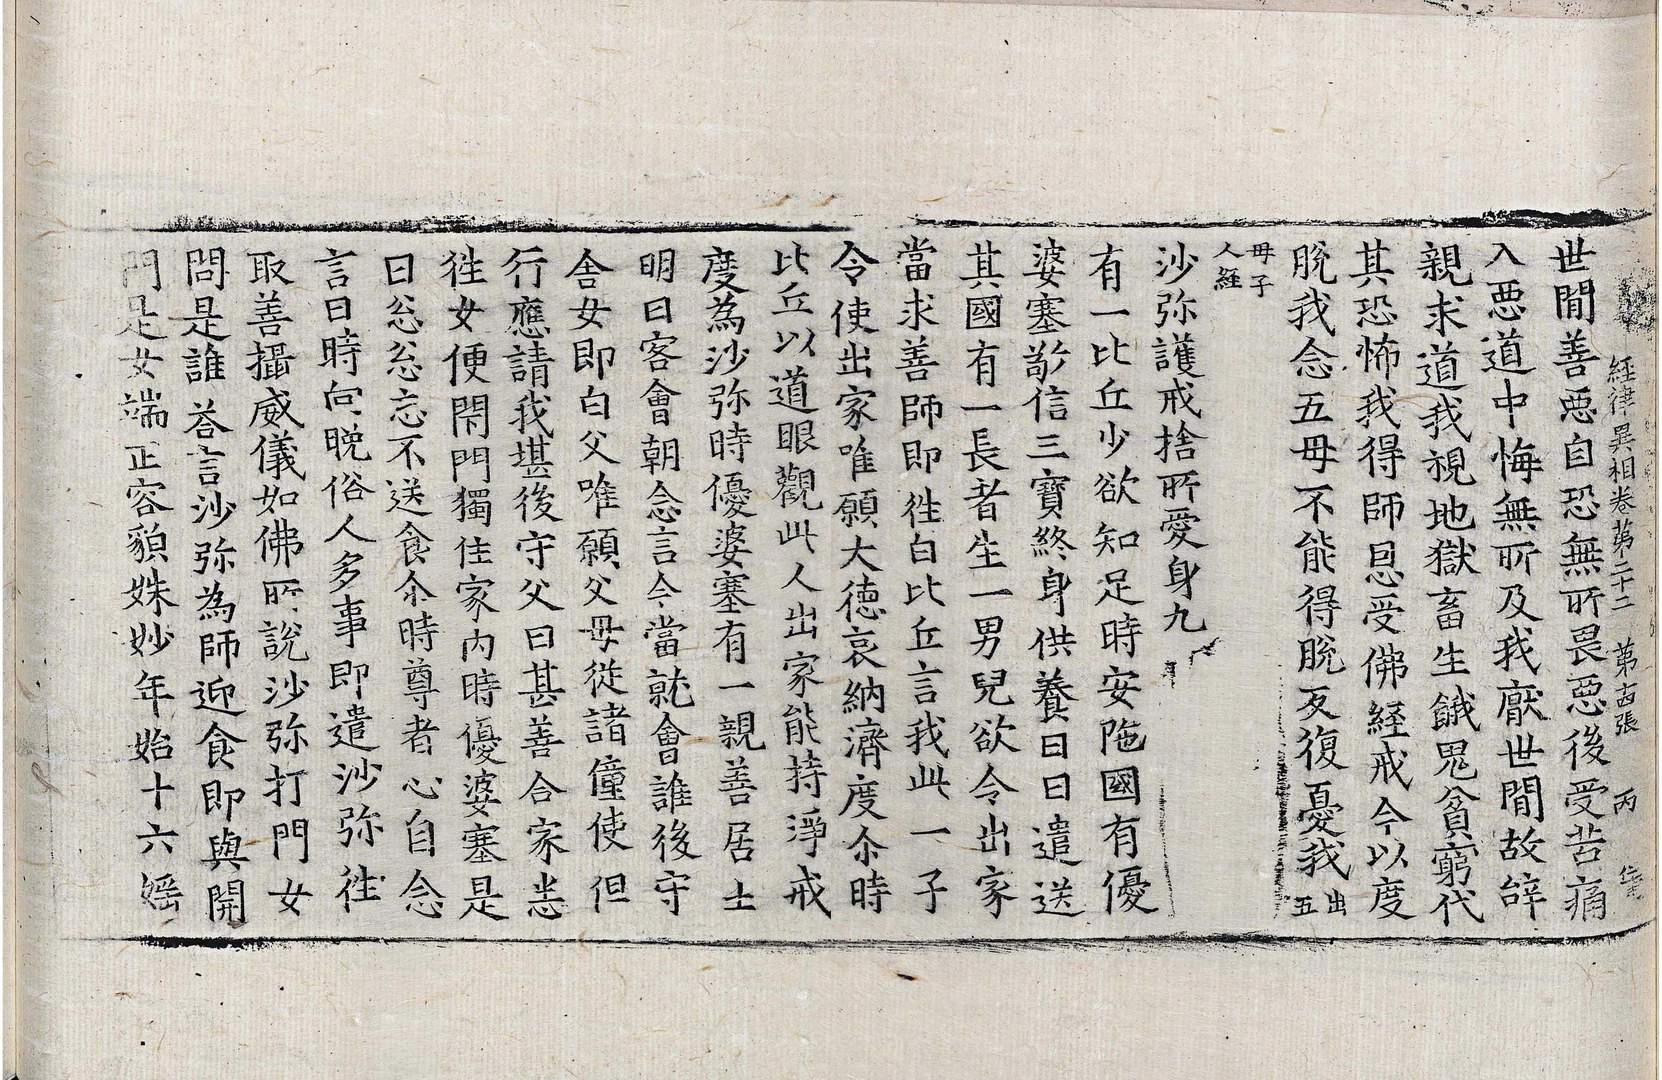 経律異相卷第二十二　第十四張　丙
世閒善惡自恐無所畏惡後受苦痛
入惡道中悔無所及我厭世閒故辞
親求道我視地獄畜生餓鬼貧窮代
其恐怖我得師恩受佛経戒今以度
脫我念五母不能得脫反復憂我出五
母子人経
沙弥護戒捨所愛身九
有一比丘少欲知足時安陁國有優
婆塞敬信三寶終身供養日日遣送
其國有一長者生一男兒欲令出家
當求善師即徃白比丘言我此一子
令使出家唯願大德哀納濟度尒時
比丘以道眼觀此人出家能持淨戒
度為沙弥時優婆塞有一親善居士
明日客會朝念言今當就會誰後守
舍女即白父唯願父母従諸僮使但
行應請我堪後守父曰甚善合家悉
徃女便閇門獨住家內時優婆塞是
日忩忩忘不送食尒時尊者心自念
言日時向晚俗人多事即遣沙弥徃
取善攝威儀如佛所說沙弥打門女
問是誰荅言沙弥為師迎食即與開
門是女端正容貌姝妙年始十六婬